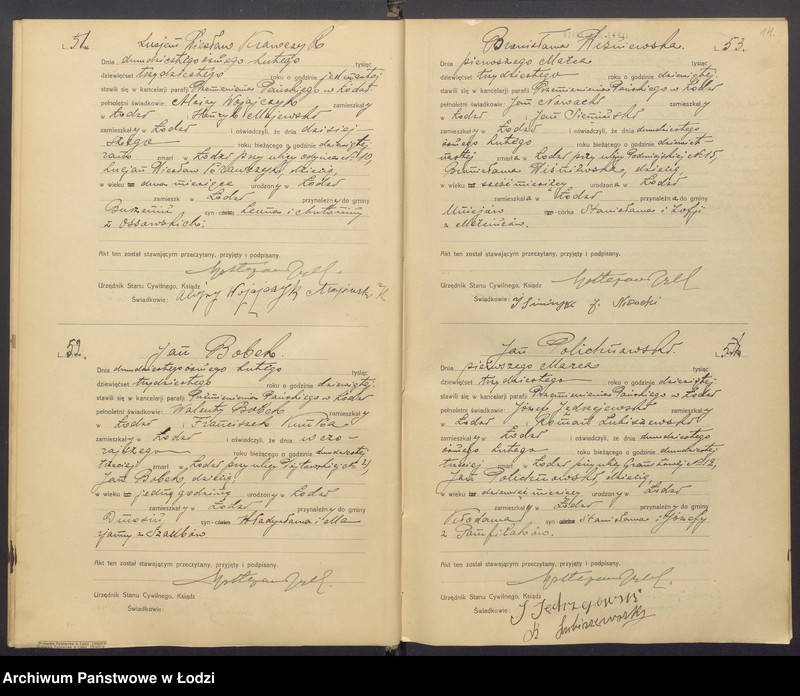 L. 51.
Lucjan Wiesław Krawczyk
Dnia dwudziestego ósmego Lutego tysiąc
dziewięćset trzydziestego roku o godzinie jedenastej
stawili się w kancelarji parafji Przemienienia Pańskiego w Łodzi
pełnoletni świadkowie: Wojajczyk zamieszkały
w Łodzi i Henryk Majewski
zamieszkały w Łodzi i oświadczyli, że dnia dzisiej-
szego roku bieżącego o godzinie dziewiątej
rano zmarł w Łodzi przy ulicy № 10,
Lucjan Wiesław Krawczyk, dziecię,
w wieku dwa miesiące urodzony w Łodzi
zamieszk w Łodzi przynależny do gminy
syn-córka Leona i Antoniny
z Ossowskich.
Akt ten został stawającym przeczytany, przyjęty i podpisany.
Urzędnik Stanu Cywilnego, Ksiądz
Świadkowie: Wojajczyk Majewski H
L. 52.
Jan Bobek.
Dnia dwudziestego ósmego Lutego tysiąc
dziewięćset trzydziestego roku o godzinie dziewiątej
stawili się w kancelarji parafji Przemienienia Pańskiego w Łodzi
pełnoletni świadkowie: Walenty Bobek zamieszkały
w Łodzi i Franciszek
zamieszkały w Łodzi i oświadczyli, że dnia wczo-
rajszego roku bieżącego o godzinie dwudziestej
trzeciej zmarł w Łodzi przy ulicy №
Jan Bobek, dziecię,
w wieku jedną godzinę urodzony w Łodzi
zamieszkały w Łodzi przynależny do gminy
syn-córka Władysława i Ma
rjanny z
Akt ten został stawającym przeczytany, przyjęty i podpisany.
Urzędnik Stanu Cywilnego, Ksiądz
Świadkowie:
14.
L. 53.
Bronisława Wiśniewska.
Dnia pierwszego Marca tysiąc
dziewięćset trzydziestego roku o godzinie dziewiątej
stawili się w kancelarji parafji Przemienienia Pańskiego w Łodzi
pełnoletni świadkowie: Jan Nowacki zamieszkały
w Łodzi i Jan
zamieszkały w Łodzi i oświadczyli, że dnia dwudziestego
ósmego Lutego roku bieżącego o godzinie dziewięt-
nastej zmarła w Łodzi przy ulicy № 15,
Bronisława Wiśniewska, dziecię,
w wieku sześć miesięcy urodzona w Łodzi
zamieszkała w Łodzi przynależna do gminy
syn-córka Stanisława i Zofji
z
Akt ten został stawającym przeczytany, przyjęty i podpisany.
Urzędnik Stanu Cywilnego, Ksiądz
Świadkowie: J. Nowacki
L. 54.
Jan
Dnia pierwszego Marca tysiąc
dziewięćset trzydziestego roku o godzinie dziewiątej
stawili się w kancelarji parafji Przemienienia Pańskiego w Łodzi
pełnoletni świadkowie: Józef Jędrzejewski zamieszkały
w Łodzi i Roman Lubiszewski
zamieszkały w Łodzi i oświadczyli, że dnia dwudziestego
ósmego Lutego roku bieżącego o godzinie dwudziestej
zmarł w Łodzi przy ulicy № 12,
Jan dziecię,
w wieku dziewięć miesięcy urodzony w Łodzi
zamieszkały w Łodzi przynależny do gminy
Kłodawa syn-córka Stanisława i Józefy
z Pamfilaków.
Akt ten został stawającym przeczytany, przyjęty i podpisany.
Urzędnik Stanu Cywilnego, Ksiądz
Świadkowie: J Jędrzejewski
R Lubiszewski
Archiwum Państwowe w Łodzi